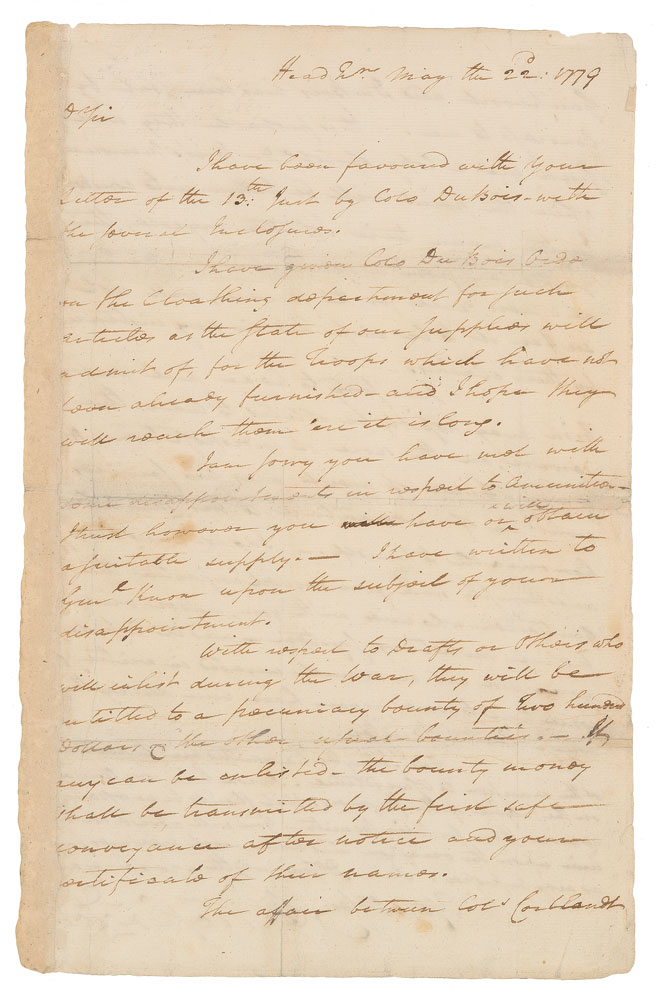 Head Qrs May the 22d: 1779
Dr Sir
I have been favoured with your
Letter of the 13th: Inst by Colo DuBois - with
the several Inclosures.
I have given Colo Du Bois Orde
on the Cloathing department for such
articles as the State of our supplies will
admit of, for the Troops which have not
been already furnished - and I hope they
will reach them 'ere it is long.
I am sorry you have met with
some disappointments in respect to Amunition -
I trust however you have or will obtain
a suitable supply. — I have written to
Genl Knox upon the subject of your
disappointment.
With respect to Drafts or Others who
will inlist during the War, they will be
intitled to a pecuniary bounty of Two hundred
Dollars & the other usual bounties. — If
any can be enlisted - the bounty money
shall be transmitted by the first safe
conveyance after notice and your
certificate of their names.
The affair between Cols Cortlandt